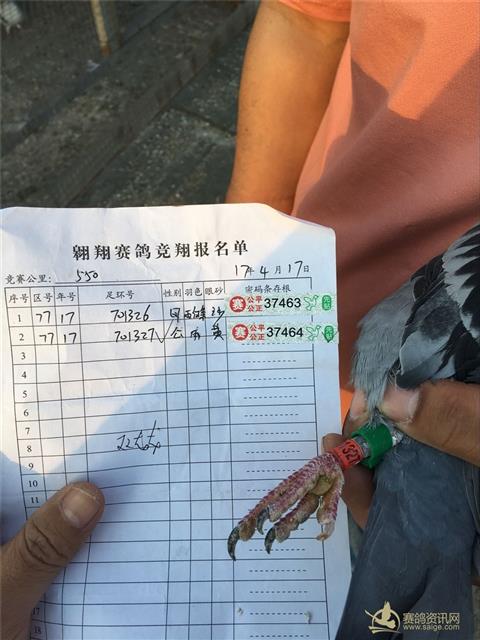 翱翔赛鸽竞翔报名单
竞赛公里：550 17年4月17日
序号 区号 年号 足环号 性别 羽色 眼砂 密码条存根
1 77 17 701326 砂 赛 公平公正 37463
2 77 17 701327 公 黄 赛 公平公正 37464
3
4
5
6
7
8
9
10
11
17
18
327
赛鸽资讯网
www.saige.com